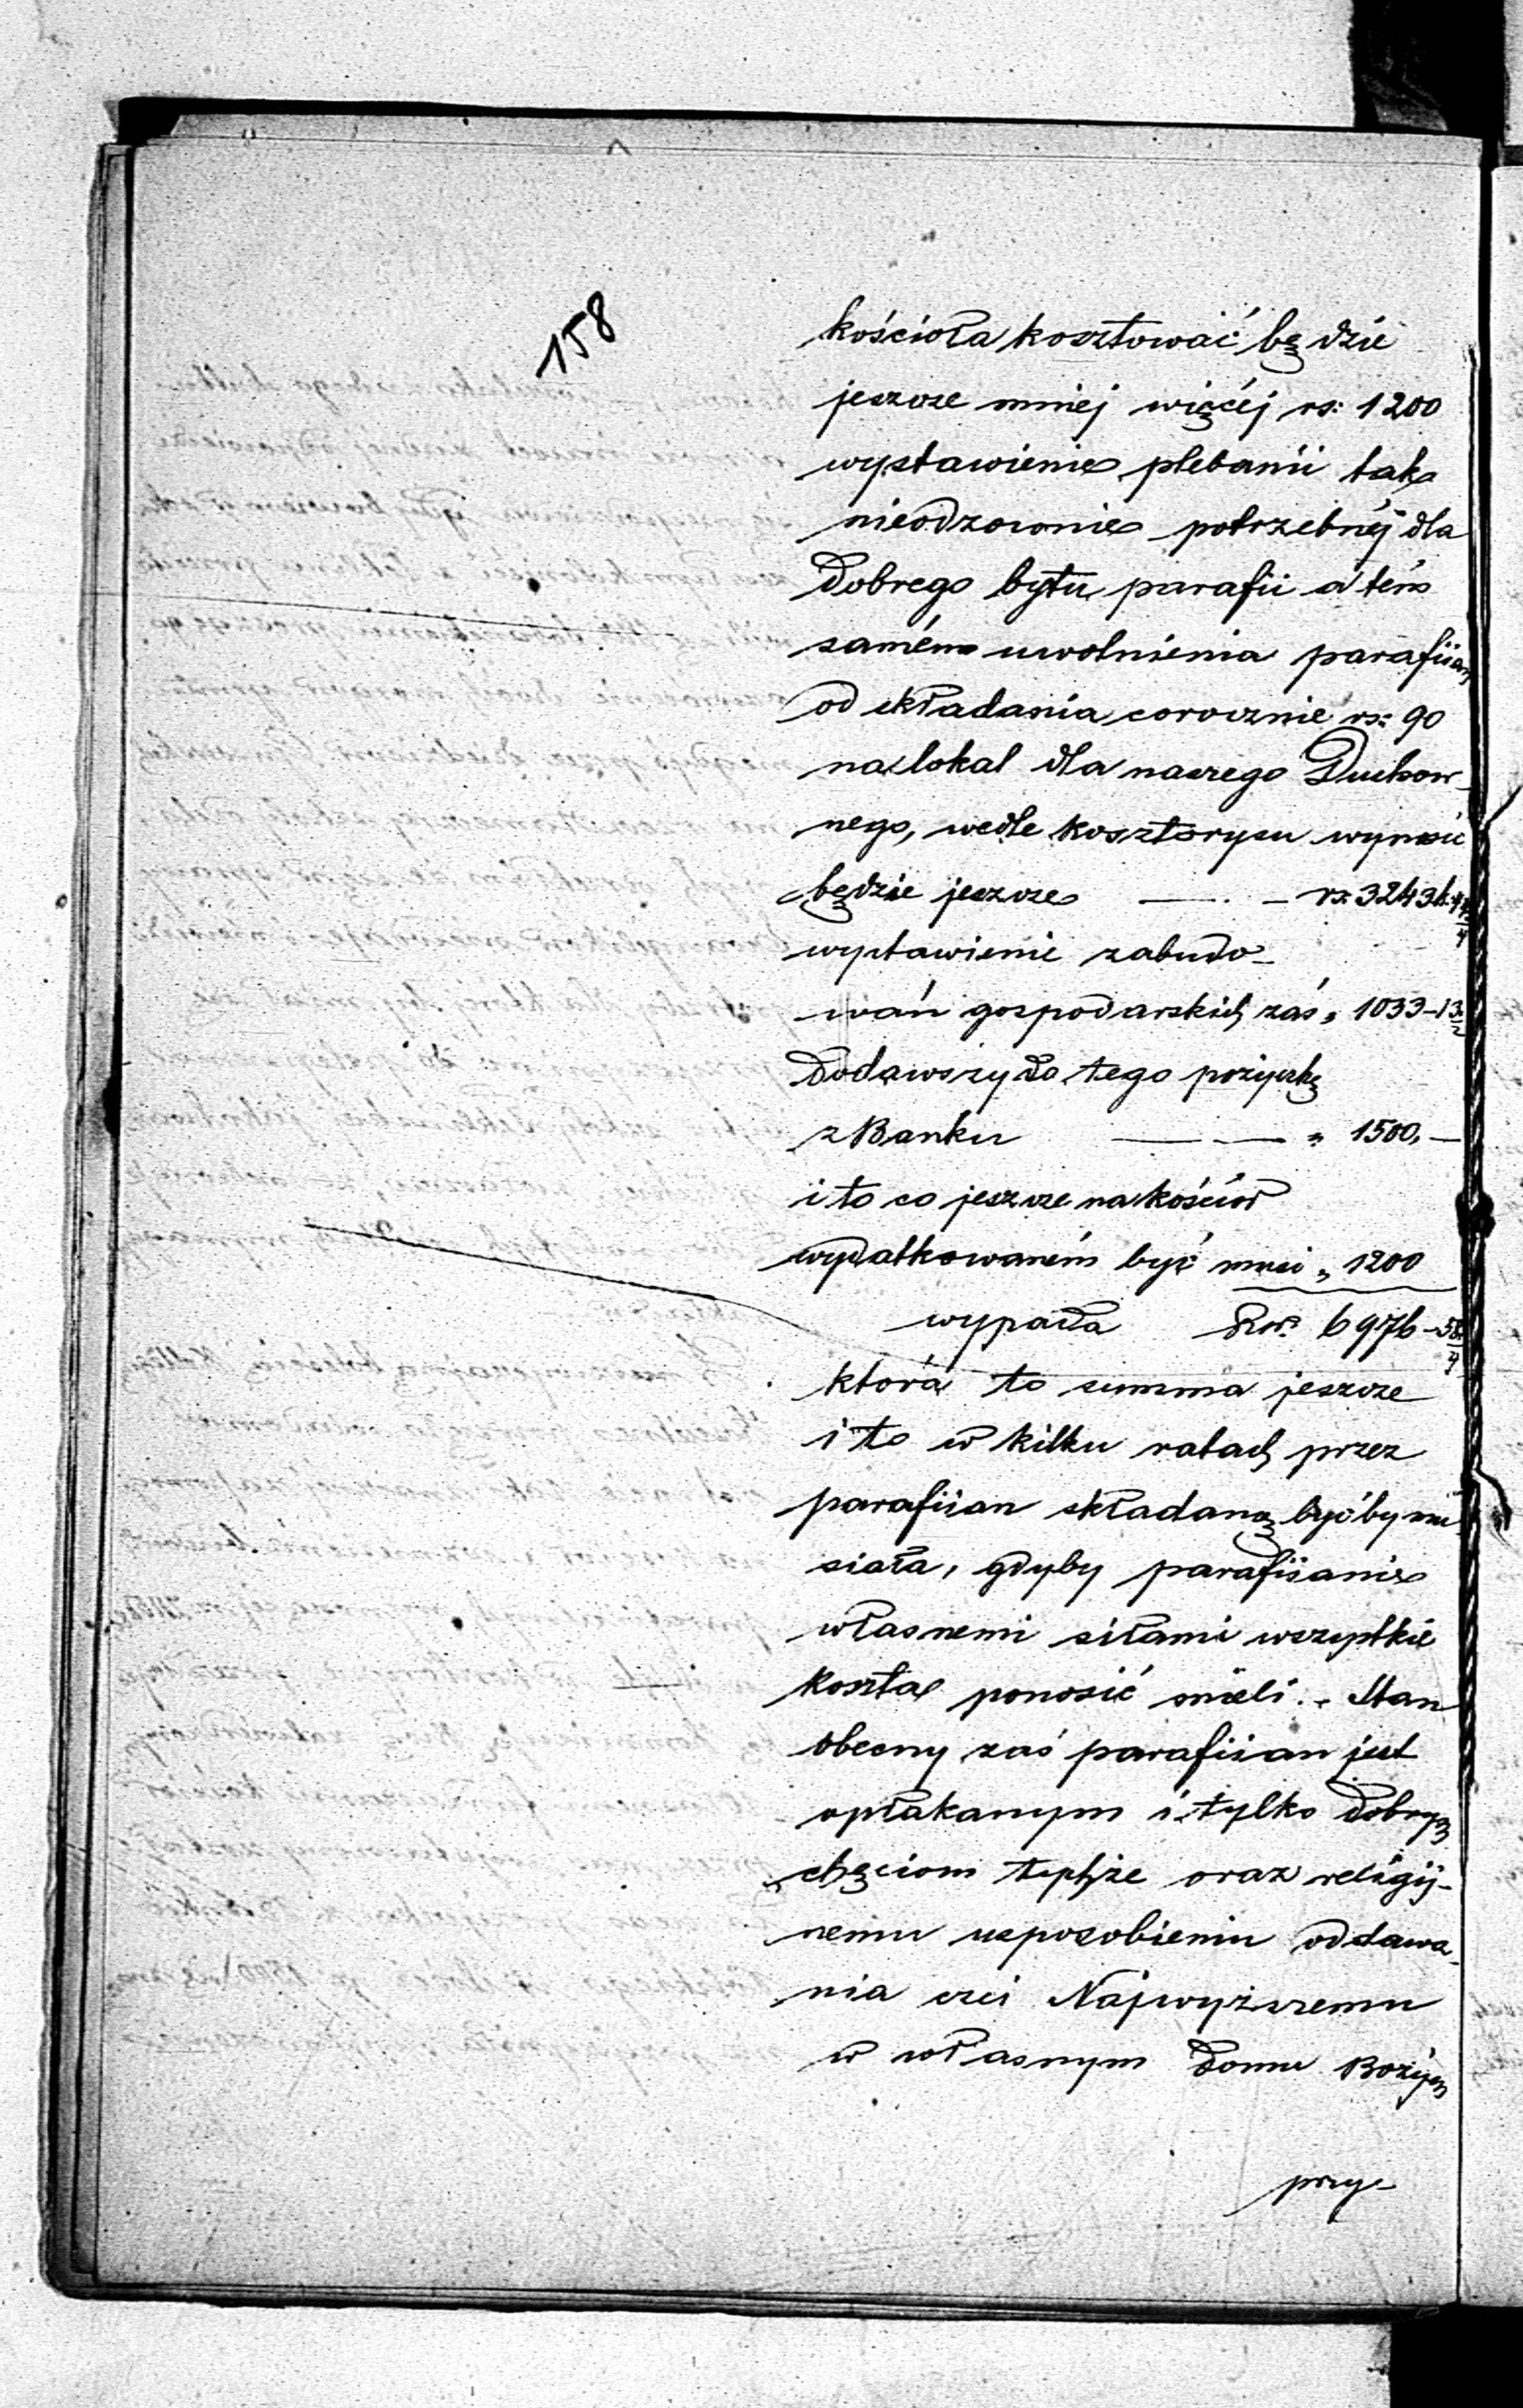 158
kościoła kosztować będzie
jeszcze mniej więcéj rs: 1200
wystawienie plebanii tak
nieodzownie potrzebnéj dla
dobrego bytu parafii a tém
samém uwolnienia parafiian
od składania corocznie rs: 90
na lokal dla naszego Duchow-
nego, wedle kosztorysu wynosić
będzie jeszcze — . — rs. 3243 k.
wystawienie zabudo-
wań gospodarskich zaś „ 1033-13
dodawszy do tego pożyczkę
z Banku — — „ 1500, —
i to co jeszcze na kościoł
wydatkowaném być musi „ 1200
wypada Rsr. 6976-58
która to summa jeszcze
i to w kilku ratach przez
parafiian składaną być by mu-
siała, gdyby parafiianie
własnemi siłami wszystkie
koszta ponosić mieli. - Stan
obecny zaś parafiian jest
opłakanym i tylko dobrym
chęciom tychże oraz religij-
nemu usposobieniu oddawa-
nia czci Najwyższemu
w własnym domu Bożym
przy-